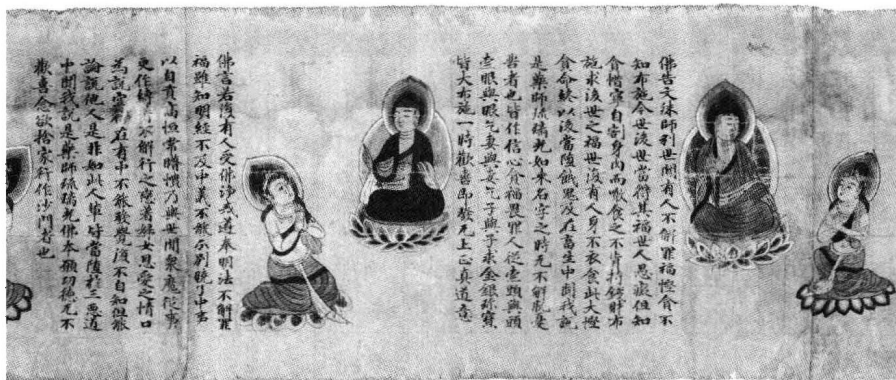 佛告文殊師利世間有人不解罪福慳貪不
知布施今世後世當得其福世人愚癡但知
貪惜寧自割身肉而噉食之不肯持錢財布
施求後世之福世復有人身不衣食此大慳
貪命終以後當墮餓鬼及在畜生中聞我說
是藥師琉璃光如來名字之時无不解脫憂
苦者也皆作信心貪福畏罪人從索頭與頭
索眼與眼乞妻與妻乞子與子求金銀珍寶
皆大布施一時歡喜即發无上正真道意
佛言若復有人受佛淨戒遵奉明法不解罪
福雖知明經不及中義不能分別曉了中事
以自貢高恒常瞢憒乃與世間眾魔從事
更作縛著不解行之戀著婦女恩愛之情口
為說空行在有中不能發覺復不自知但能
論說他人是非如此人輩皆當墮於三惡道
中聞我說是藥師琉璃光佛本願功德无不
歡喜念欲捨家行作沙門者也